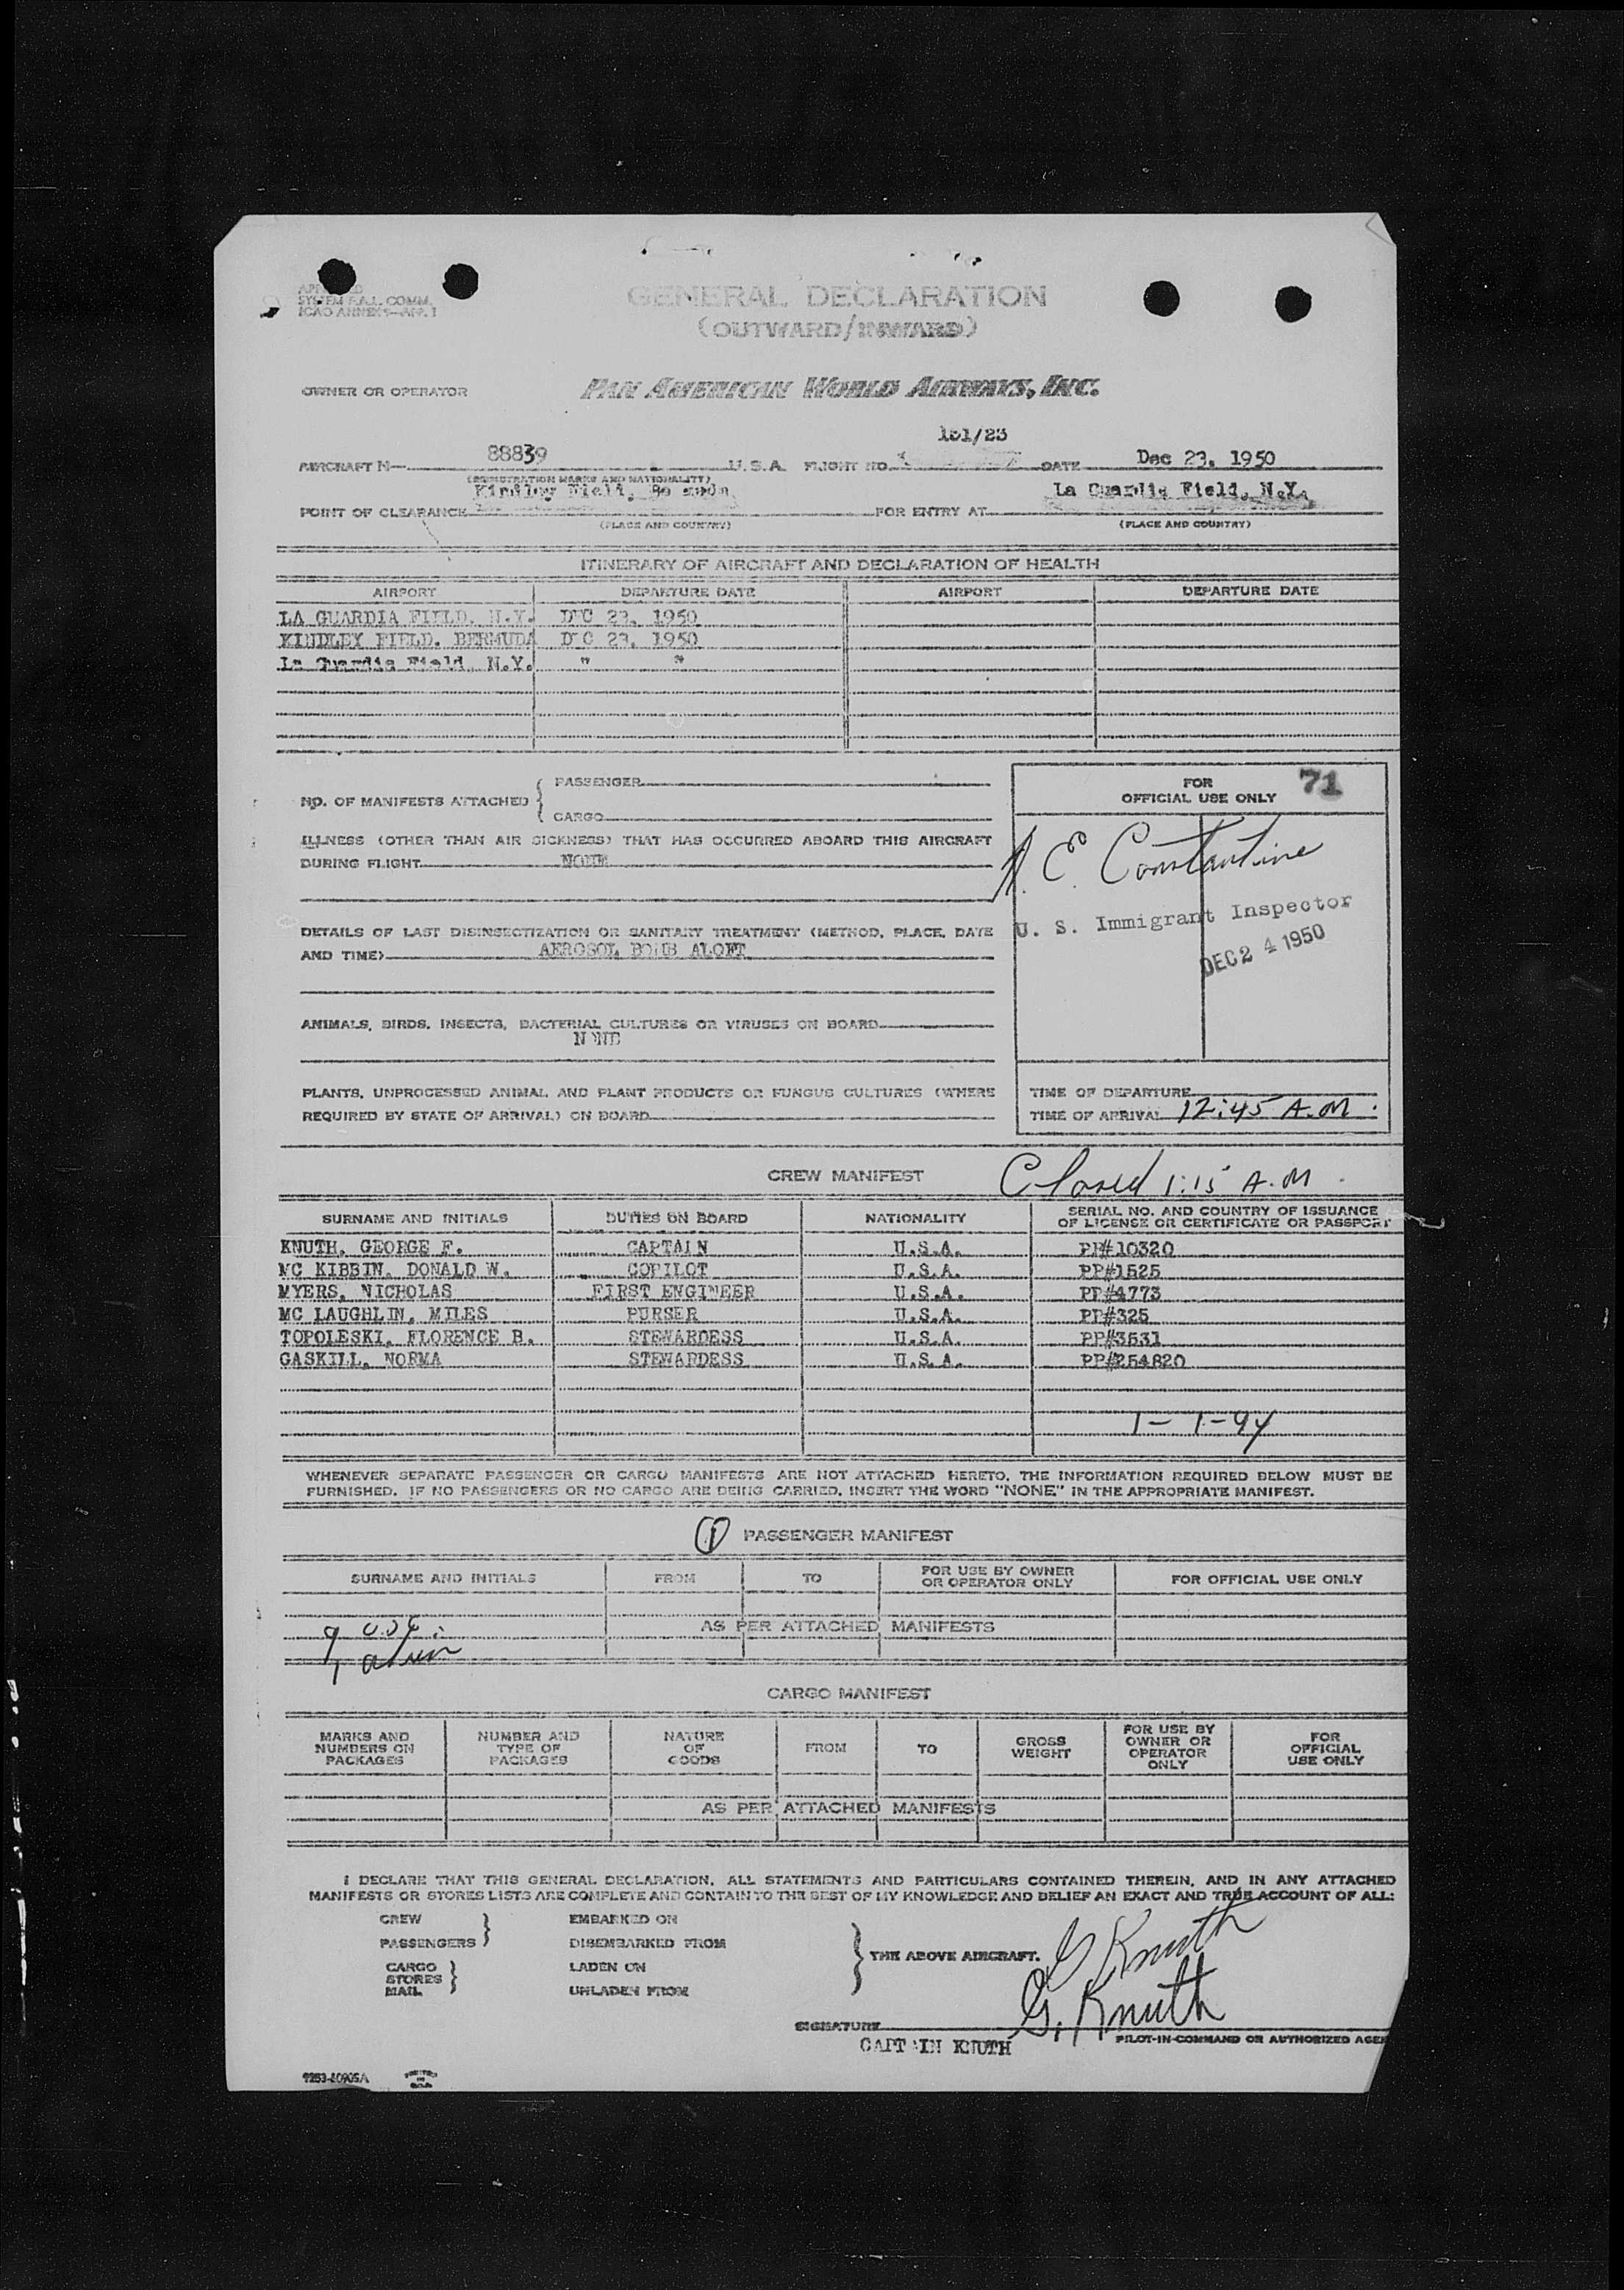 SYSTEM F.A.L. COMM.
ICAO ANNEX 9—APP. 1
GENERAL DECLARATION
(OUTWARD/INWARD)
OWNER OR OPERATOR PAN AMERICAN WORLD AIRWAYS, INC.
131/23
AIRCRAFT N— 88839 U.S.A. FLIGHT NO. DATE Dec 23, 1950
(REGISTRATION MARKS AND NATIONALITY)
Kindley Field, La Guardia Field, N.Y.
POINT OF CLEARANCE FOR ENTRY AT
(PLACE AND COUNTRY) (PLACE AND COUNTRY)
ITINERARY OF AIRCRAFT AND DECLARATION OF HEALTH
AIRPORT DEPARTURE DATE AIRPORT DEPARTURE DATE
LA GUARDIA FIELD, N.Y. DEC 23, 1950
KINDLEY FIELD, BERMUDA DEC 23, 1950
La Guardia Field, N.Y. " "
NO. OF MANIFESTS ATTACHED { PASSENGER
CARGO
ILLNESS (OTHER THAN AIR SICKNESS) THAT HAS OCCURRED ABOARD THIS AIRCRAFT
DURING FLIGHT NONE
DETAILS OF LAST DISINSECTIZATION OR SANITARY TREATMENT (METHOD, PLACE, DATE
AND TIME) AEROSOL BOMB ALOFT
ANIMALS, BIRDS, INSECTS, BACTERIAL CULTURES OR VIRUSES ON BOARD
NONE
PLANTS, UNPROCESSED ANIMAL AND PLANT PRODUCTS OR FUNGUS CULTURES (WHERE
REQUIRED BY STATE OF ARRIVAL) ON BOARD
FOR 71
OFFICIAL USE ONLY
E. Constantine
U. S. Immigrant Inspector
DEC 24 1950
TIME OF DEPARTURE
TIME OF ARRIVAL 12:45 A.M.
CREW MANIFEST Closed 1:15 A.M.
SURNAME AND INITIALS DUTIES ON BOARD NATIONALITY SERIAL NO. AND COUNTRY OF ISSUANCE
OF LICENSE OR CERTIFICATE OR PASSPORT
KNUTH, GEORGE F. CAPTAIN U.S.A. PP#10320
MC KIBBIN, DONALD W. COPILOT U.S.A. PP#1525
MYERS, NICHOLAS FIRST ENGINEER U.S.A. PP#4773
MC LAUGHLIN, MILES PURSER U.S.A. PP#325
TOPOLESKI, FLORENCE B. STEWARDESS U.S.A. PP#3531
GASKILL, NORMA STEWARDESS U.S.A. PP#254820
1-1-94
WHENEVER SEPARATE PASSENGER OR CARGO MANIFESTS ARE NOT ATTACHED HERETO, THE INFORMATION REQUIRED BELOW MUST BE
FURNISHED. IF NO PASSENGERS OR NO CARGO ARE BEING CARRIED, INSERT THE WORD "NONE" IN THE APPROPRIATE MANIFEST.
1 PASSENGER MANIFEST
SURNAME AND INITIALS FROM TO FOR USE BY OWNER
OR OPERATOR ONLY FOR OFFICIAL USE ONLY
AS PER ATTACHED MANIFESTS
9 USC
1 alien
CARGO MANIFEST
MARKS AND
NUMBERS ON
PACKAGES NUMBER AND
TYPE OF
PACKAGES NATURE
OF
GOODS FROM TO GROSS
WEIGHT FOR USE BY
OWNER OR
OPERATOR
ONLY FOR
OFFICIAL
USE ONLY
AS PER ATTACHED MANIFESTS
I DECLARE THAT THIS GENERAL DECLARATION, ALL STATEMENTS AND PARTICULARS CONTAINED THEREIN, AND IN ANY ATTACHED
MANIFESTS OR STORES LISTS ARE COMPLETE AND CONTAIN TO THE BEST OF MY KNOWLEDGE AND BELIEF AN EXACT AND TRUE ACCOUNT OF ALL:
CREW EMBARKED ON
PASSENGERS DISEMBARKED FROM
THE ABOVE AIRCRAFT. G Knuth
CARGO LADEN ON
STORES
MAIL UNLADEN FROM
G. Knuth
SIGNATURE
CAPTAIN KNUTH PILOT-IN-COMMAND OR AUTHORIZED AGENT
9253-40905A PRINTED
IN
U.S.A.